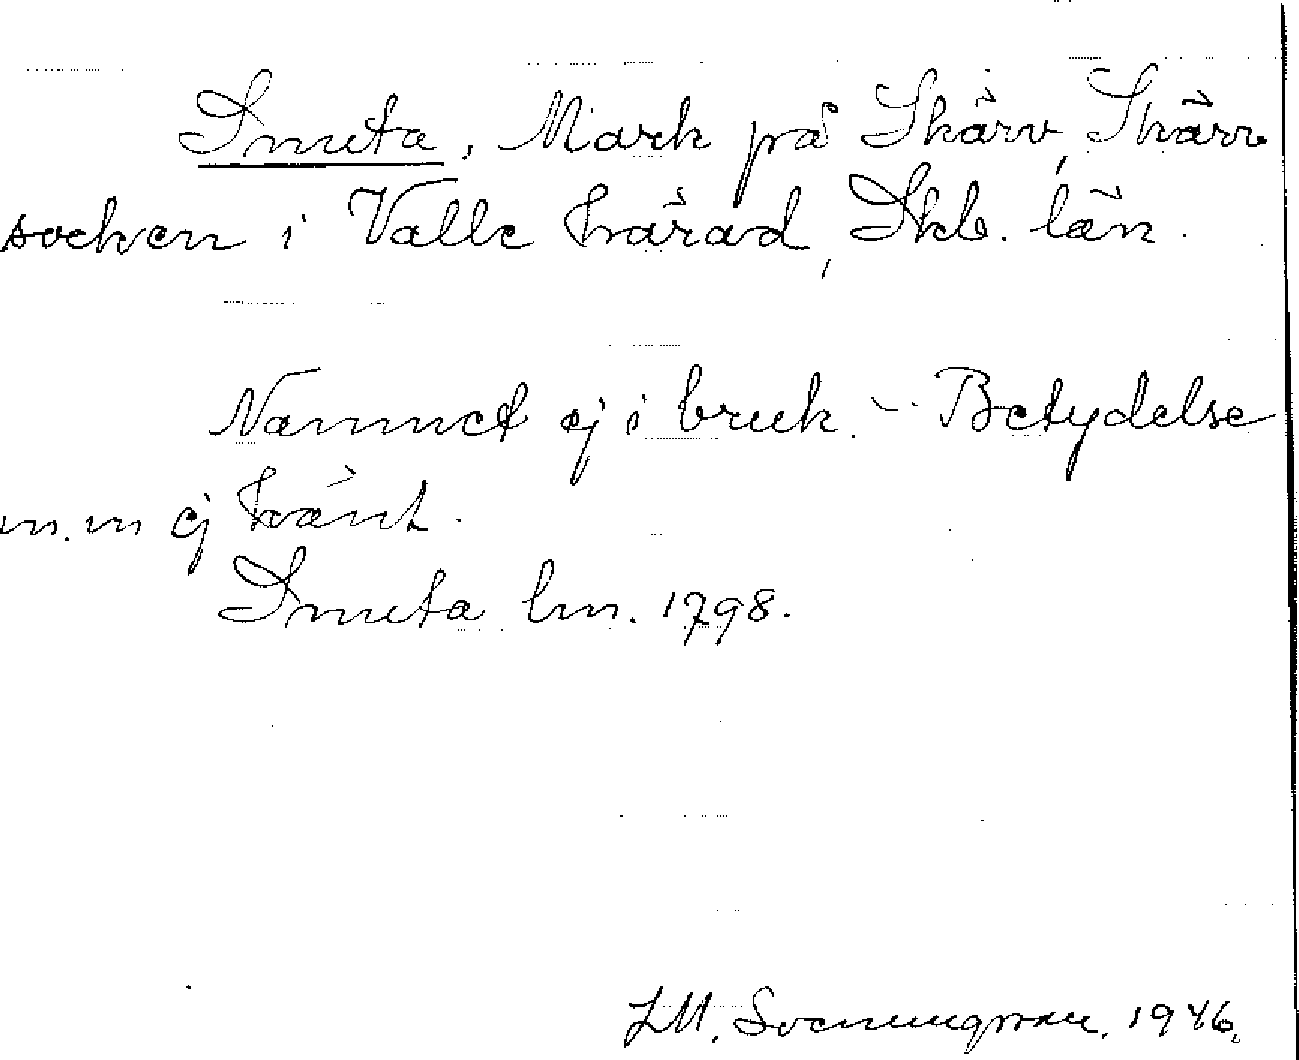 Smuta, Mark på Skärv, Skärvs
socken i Valle härad, Skb. län.
Namnet ej i bruk. - Betydelse
m.m ej känt.
Smuta lm. 1798.
J.M. Svenungsson. 1946.